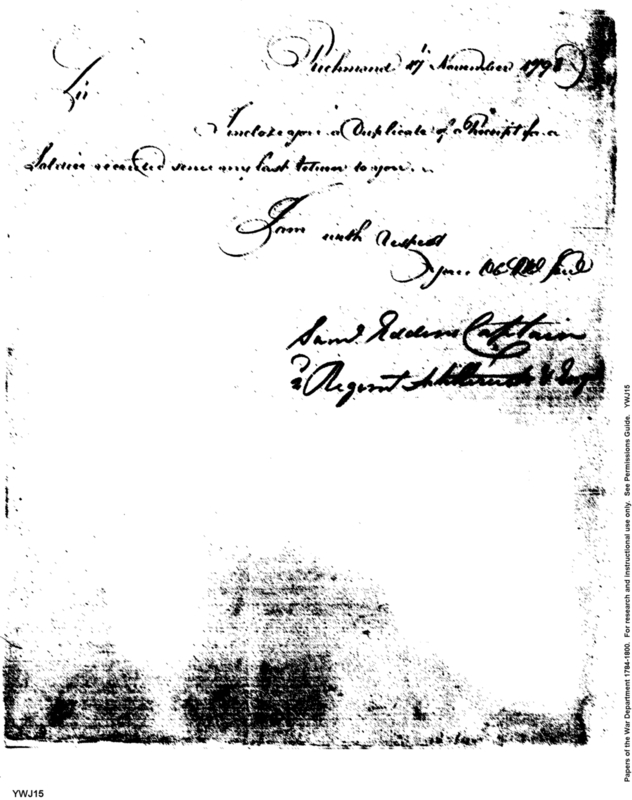 Richmond 17 November 1798
Sir
I inclose you a Duplicate of a Receipt for a
Soldier recruited since my last return to you
I am with Respect
Your Ob
Saml. Eddins Captain
2d Regemt Artillerists & Engrs
Papers of the War Department 1784-1800. For research and Instructional use only. See Permissions Guide. YWJ15
YWJ15